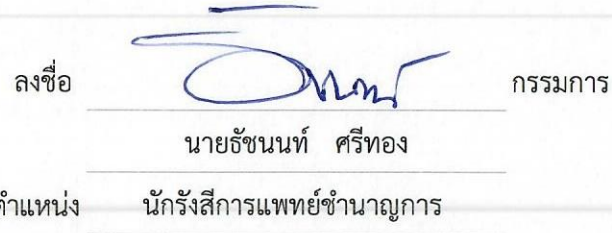 ลงชื่อ กรรมการ
นายธัชนนท์ ศรีทอง
ตำแหน่ง นักรังสีการแพทย์ชำนาญการ